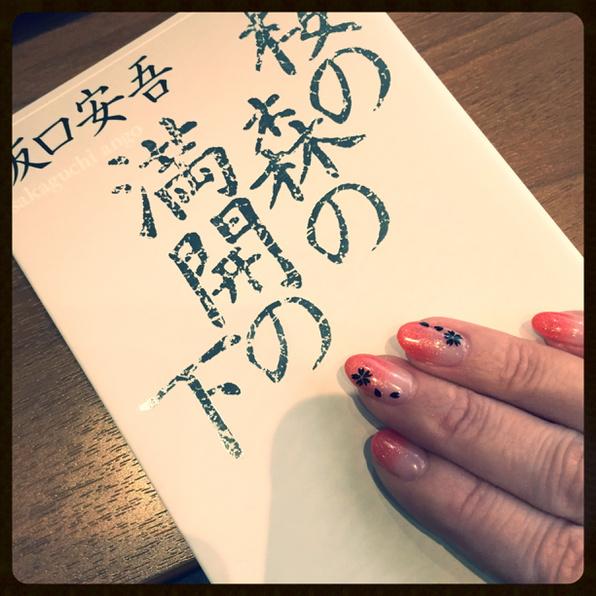 桜の森の
満開の下
坂口安吾
sakaguchi ango